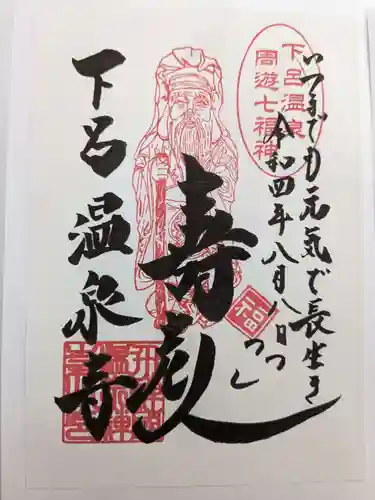 いつまでも元気で長生き
令和四年八月八日
下呂温泉
周遊七福神
寿老人
福
下呂温泉寺